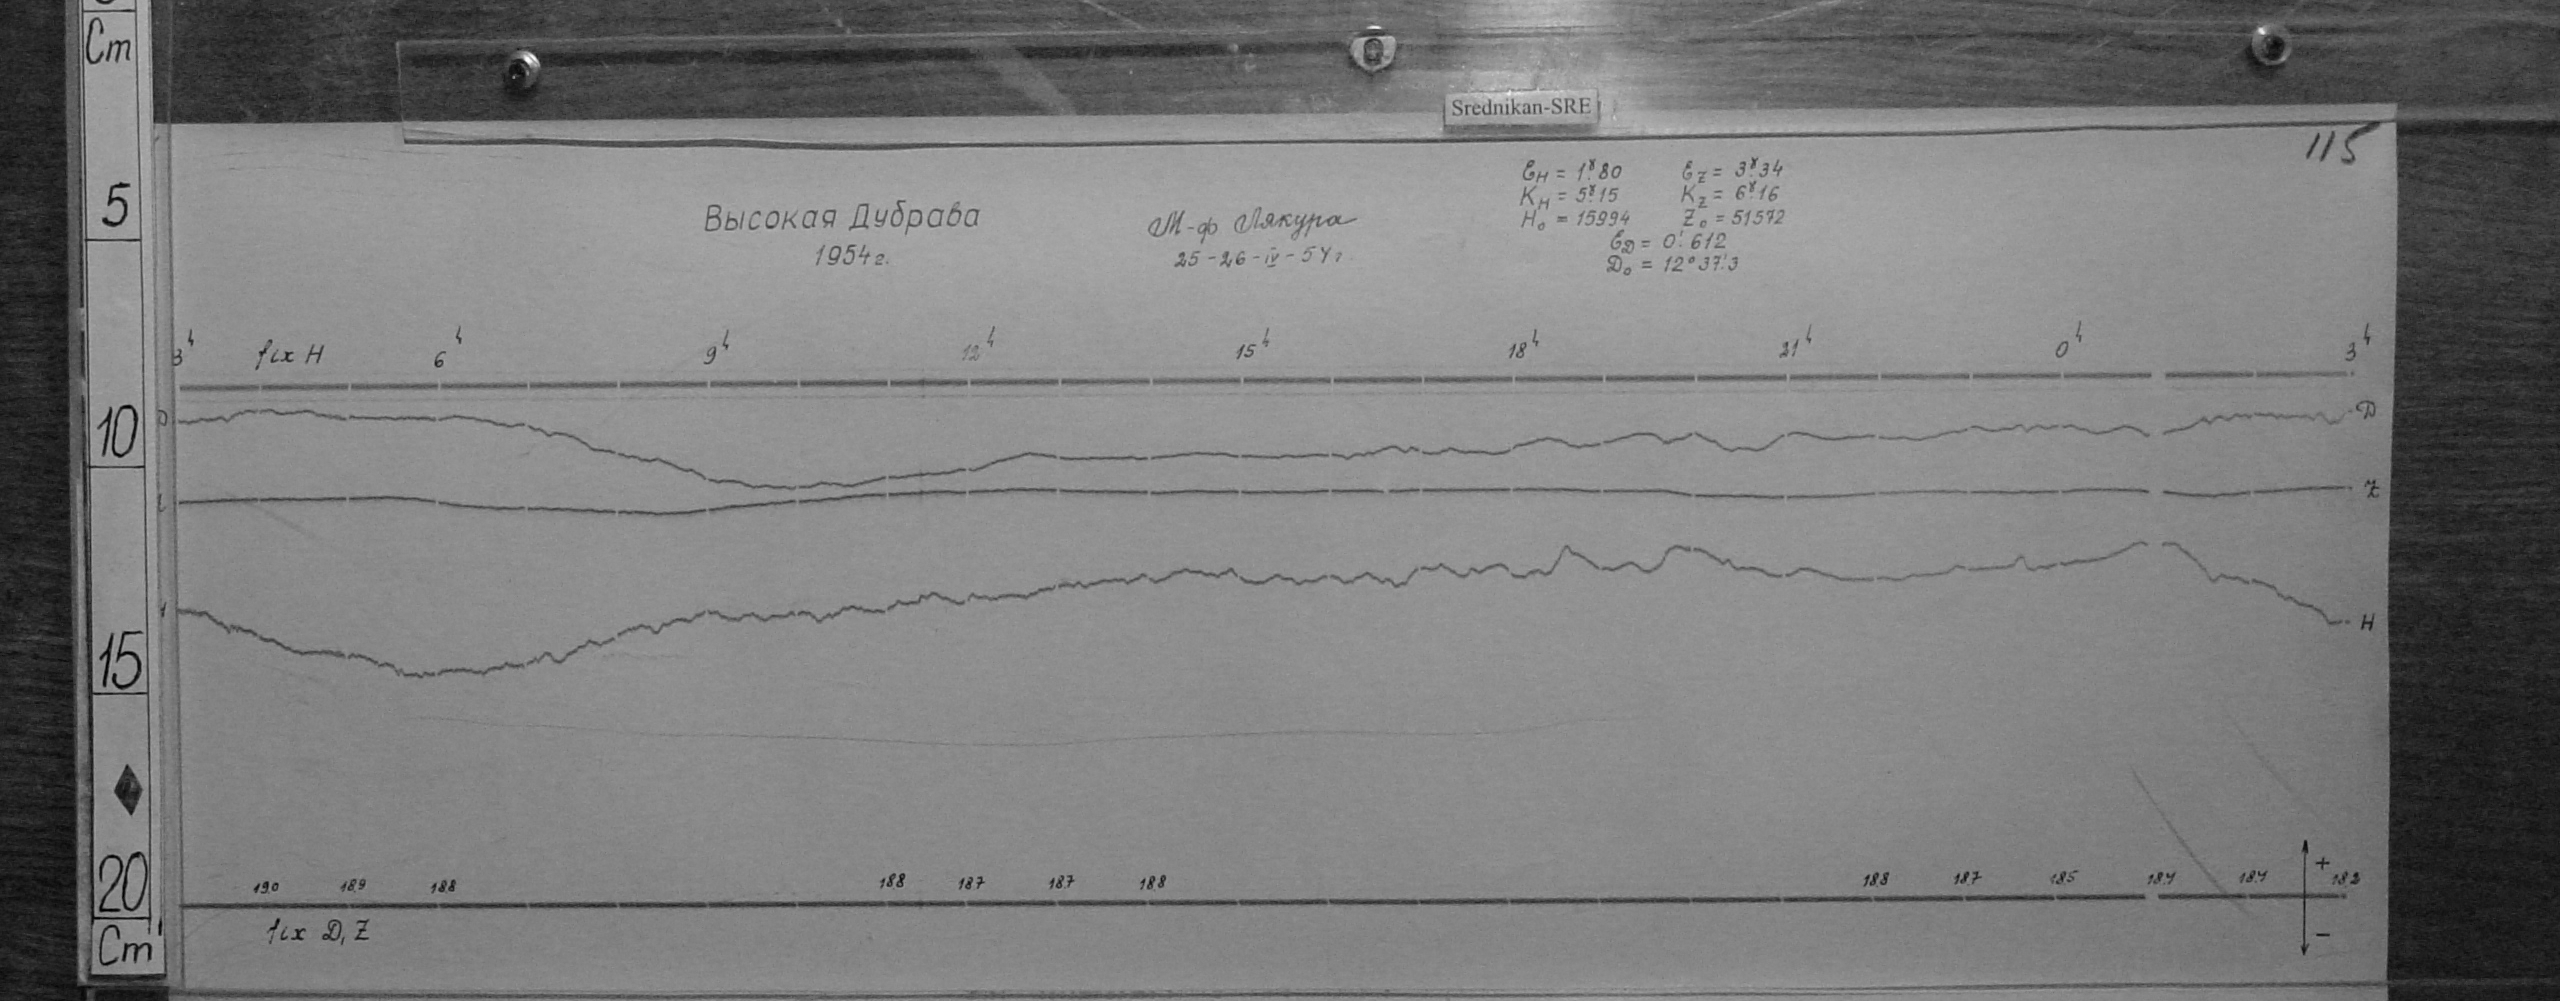 Cm
5
10
15
20
Cm
Srednikan-SRE
115
Высокая Дубрава
1954г.
М-ф Лякура
25-26-IV-54г
Ɛн = 1ˠ.80 Ɛz = 3ˠ.34
Kн = 5ˠ.15 Kz = 6ˠ.16
H₀ = 15994 Z₀ = 51572
ƐD = 0'.612
D₀ = 12°37'.3
3ч fix H 6ч 9ч 12ч 15ч 18ч 21ч 0ч 3ч
D D
Z
H
190 189 188 188 187 187 188 188 187 185 184 184 182
fix D, Z
+
-